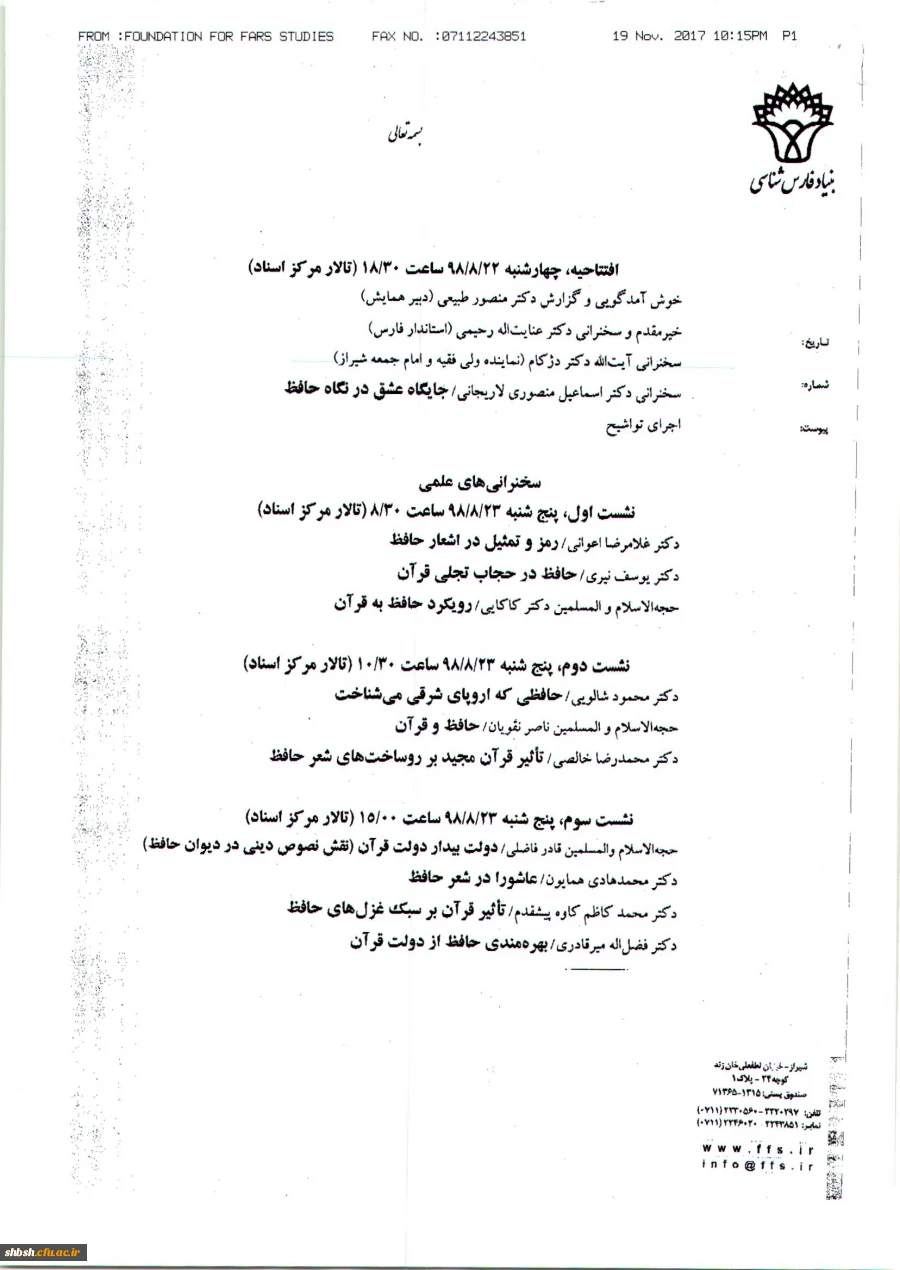 FROM :FOUNDATION FOR FARS STUDIES FAX NO. :07112243851 19 Nov. 2017 10:15PM P1
بسمه تعالی
بنیاد فارس شناسی
افتتاحیه، چهارشنبه ۹۸/۸/۲۲ ساعت ۱۸/۳۰ (تالار مرکز اسناد)
خوش آمدگویی و گزارش دکتر منصور طبیعی (دبیر همایش)
خیرمقدم و سخنرانی دکتر عنایت‌اله رحیمی (استاندار فارس)
تاریخ:
سخنرانی آیت‌الله دکتر دژکام (نماینده ولی فقیه و امام جمعه شیراز)
شماره:
سخنرانی دکتر اسماعیل منصوری لاریجانی/ جایگاه عشق در نگاه حافظ
پیوست:
اجرای تواشیح
سخنرانی‌های علمی
نشست اول، پنج شنبه ۹۸/۸/۲۳ ساعت ۸/۳۰ (تالار مرکز اسناد)
دکتر غلامرضا اعوانی/ رمز و تمثیل در اشعار حافظ
دکتر یوسف نیری/ حافظ در حجاب تجلی قرآن
حجه‌الاسلام و المسلمین دکتر کاکایی/ رویکرد حافظ به قرآن
نشست دوم، پنج شنبه ۹۸/۸/۲۳ ساعت ۱۰/۳۰ (تالار مرکز اسناد)
دکتر محمود شالویی/ حافظی که اروپای شرقی می‌شناخت
حجه‌الاسلام و المسلمین ناصر نقویان/ حافظ و قرآن
دکتر محمدرضا خالصی/ تأثیر قرآن مجید بر روساخت‌های شعر حافظ
نشست سوم، پنج شنبه ۹۸/۸/۲۳ ساعت ۱۵/۰۰ (تالار مرکز اسناد)
حجه‌الاسلام والمسلمین قادر فاضلی/ دولت بیدار دولت قرآن (نقش نصوص دینی در دیوان حافظ)
دکتر محمدهادی همایون/ عاشورا در شعر حافظ
دکتر محمد کاظم کاوه پیشقدم/ تأثیر قرآن بر سبک غزل‌های حافظ
دکتر فضل‌اله میرقادری/ بهره‌مندی حافظ از دولت قرآن
شیراز - لطفعلی‌خان زند
کوچه ۲۴ - پلاک ۱
صندوق پستی: ۱۳۱۵-۷۱۳۶۵
تلفن: ۲۲۲۰۲۹۷ - ۲۲۳۰۵۶۰ (۰۷۱۱)
نمابر: ۲۲۴۳۸۵۱ - ۲۲۴۶۰۲۰ (۰۷۱۱)
www.ffs.ir
info@ffs.ir
shbsh.cfu.ac.ir